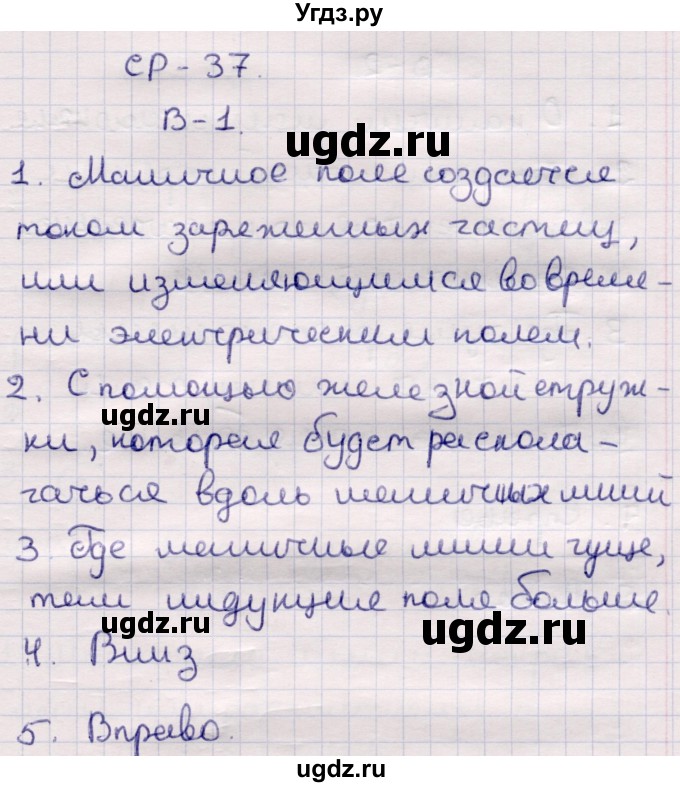 Угдз.ру
СР - 37.
В-1.
ugdz.ru
1. Магнитное поле создается
током заряженных частиц,
или изменяющимся во време-
ни электрическим полем.
2. С помощью железной струж-
ugdz.ru
ки, которая будет распола-
гаться вдоль магнитных линий
3. Где магнитные линии гуще,
там индукция поля больше.
ugdz.ru
ugdz.ru
4. Вниз
5. Вправо.
ugdz.ru